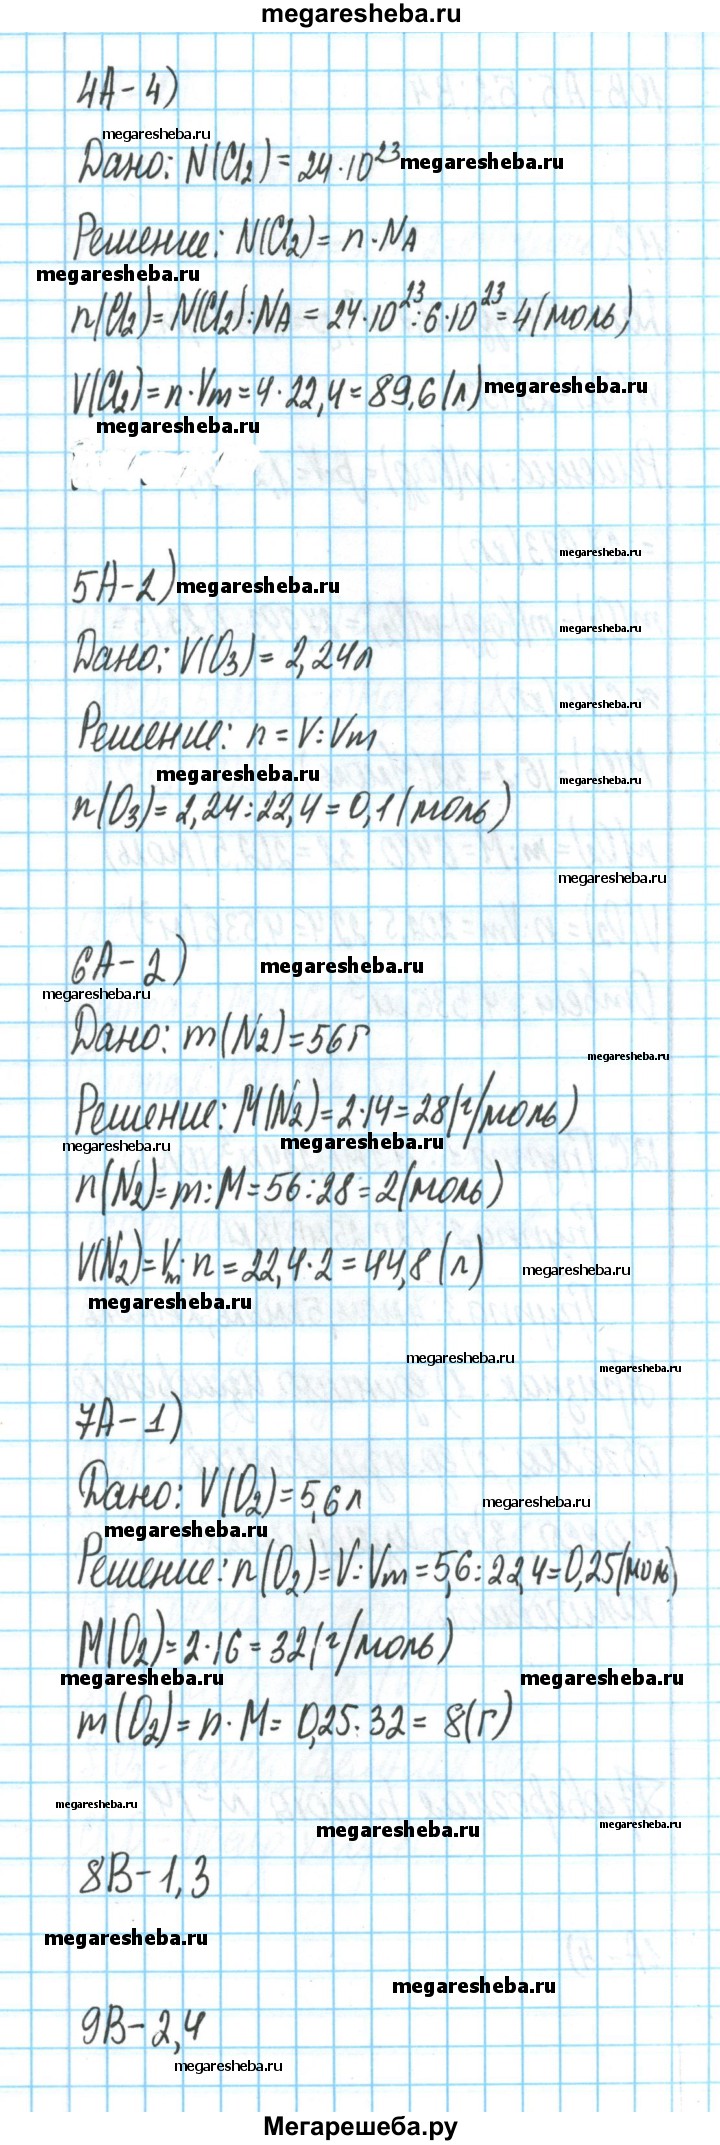 megaresheba.ru
4А-4)
megaresheba.ru
Дано: N(Cl₂) = 24·10²³ megaresheba.ru
Решение: N(Cl₂) = n·NA
megaresheba.ru
n(Cl₂) = N(Cl₂):NA = 24·10²³:6·10²³ = 4(моль)
V(Cl₂) = n·Vm = 4·22,4 = 89,6(л) megaresheba.ru
megaresheba.ru
megaresheba.ru
5А-2) megaresheba.ru
megaresheba.ru
Дано: V(O₃) = 2,24л
megaresheba.ru
Решение: n = V:Vm
megaresheba.ru megaresheba.ru
n(O₃) = 2,24:22,4 = 0,1(моль)
megaresheba.ru
6А-2) megaresheba.ru
megaresheba.ru
Дано: m(N₂) = 56г
megaresheba.ru
Решение: M(N₂) = 2·14 = 28(г/моль)
megaresheba.ru megaresheba.ru
n(N₂) = m:M = 56:28 = 2(моль)
V(N₂) = Vm·n = 22,4·2 = 44,8(л) megaresheba.ru
megaresheba.ru
megaresheba.ru megaresheba.ru
7А-1)
Дано: V(O₂) = 5,6л megaresheba.ru
megaresheba.ru
Решение: n(O₂) = V:Vm = 5,6:22,4 = 0,25(моль)
M(O₂) = 2·16 = 32(г/моль)
megaresheba.ru megaresheba.ru
m(O₂) = n·M = 0,25·32 = 8(г)
megaresheba.ru
megaresheba.ru megaresheba.ru
8В-1,3
megaresheba.ru
megaresheba.ru
9В-2,4
megaresheba.ru
Мегарешеба.ру